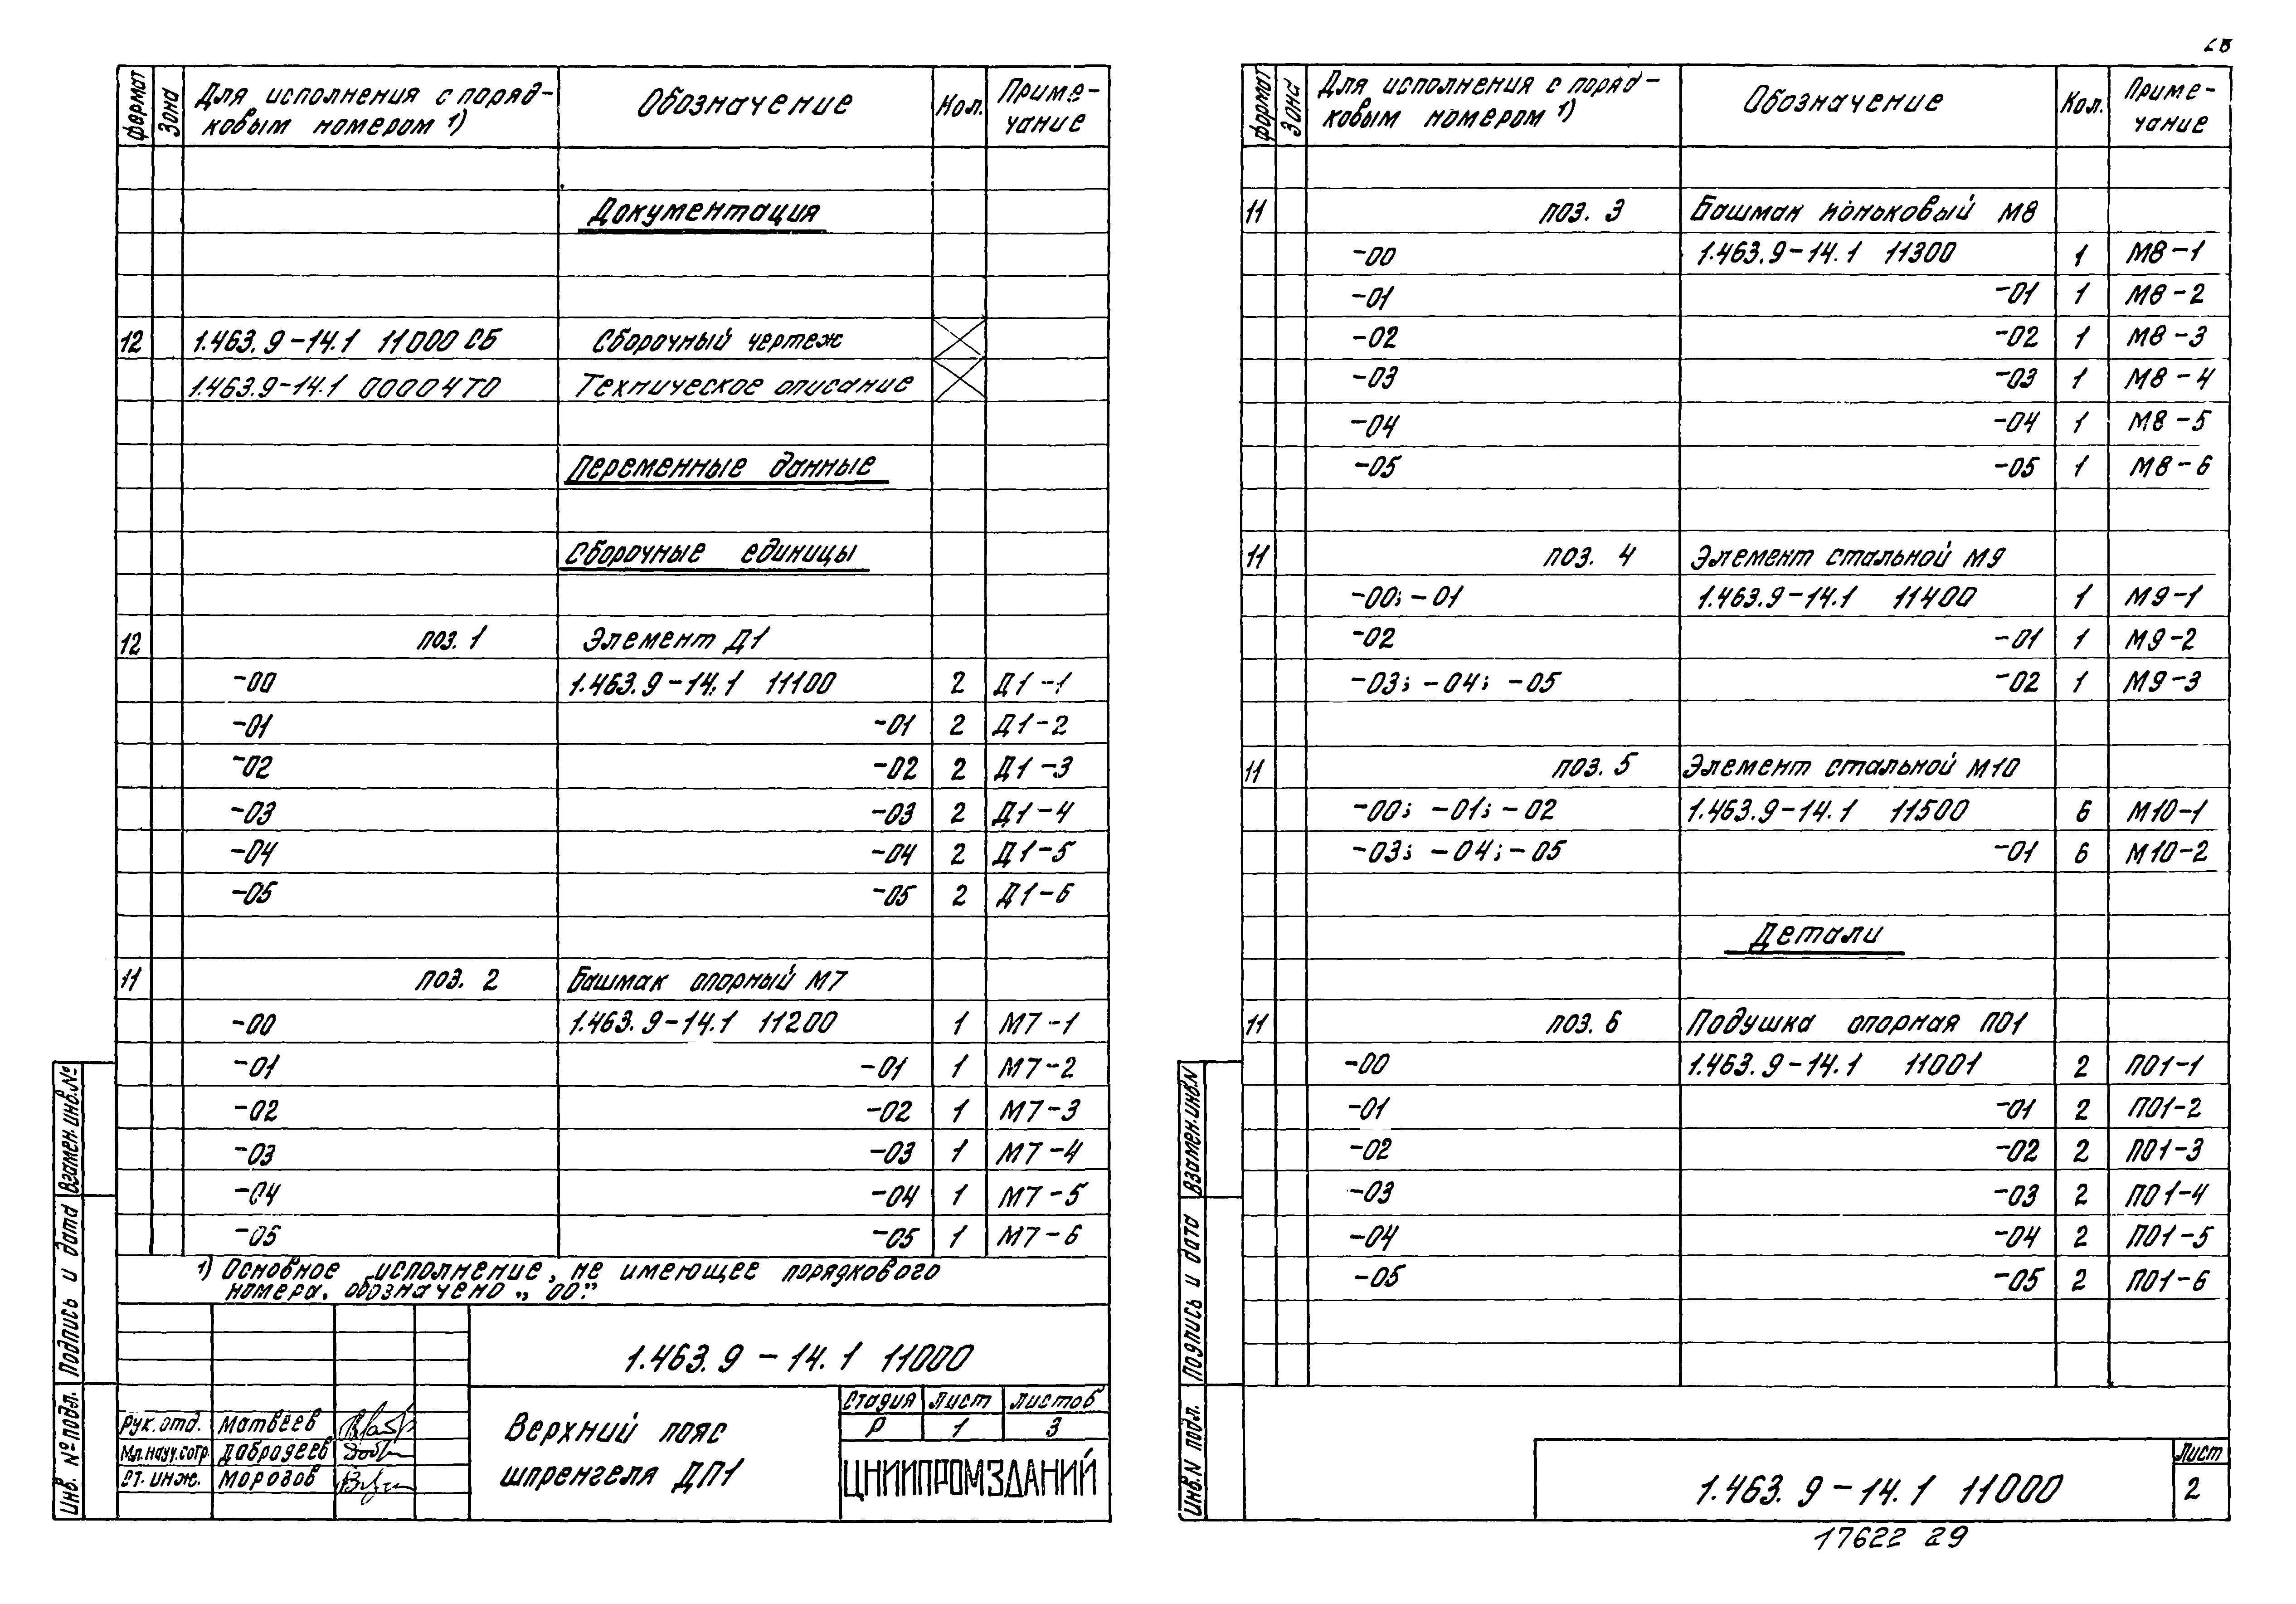 28
формат Зона Для исполнения с поряд- Обозначение Кол. Приме-
ковым номером 1) чание
Документация
12 1.463.9-14.1 11000 СБ Сборочный чертеж
1.463.9-14.1 00004ТО Техническое описание
Переменные данные
Сборочные единицы
12 поз. 1 Элемент Д1
-00 1.463.9-14.1 11100 2 Д1-1
-01 -01 2 Д1-2
-02 -02 2 Д1-3
-03 -03 2 Д1-4
-04 -04 2 Д1-5
-05 -05 2 Д1-6
11 поз. 2 Башмак опорный М7
-00 1.463.9-14.1 11200 1 М7-1
-01 -01 1 М7-2
-02 -02 1 М7-3
-03 -03 1 М7-4
-04 -04 1 М7-5
-05 -05 1 М7-6
1) Основное исполнение, не имеющее порядкового
номера, обозначено „00".
1.463.9-14.1 11000
Рук. отд. Матвеев
Мл.науч.сотр. Добрадеев
Ст. инж. Морозов
Верхний пояс
шпренгеля ДП1
Стадия Лист Листов
Р 1 3
ЦНИИПРОМЗДАНИЙ
Взамен.инв.№
Подпись и дата
Инв. № подл.
формат Зона Для исполнения с поряд- Обозначение Кол. Приме-
ковым номером 1) чание
11 поз. 3 Башмак коньковый М8
-00 1.463.9-14.1 11300 1 М8-1
-01 -01 1 М8-2
-02 -02 1 М8-3
-03 -03 1 М8-4
-04 -04 1 М8-5
-05 -05 1 М8-6
11 поз. 4 Элемент стальной М9
-00; -01 1.463.9-14.1 11400 1 М9-1
-02 -01 1 М9-2
-03; -04; -05 -02 1 М9-3
11 поз. 5 Элемент стальной М10
-00; -01; -02 1.463.9-14.1 11500 6 М10-1
-03; -04; -05 -01 6 М10-2
Детали
11 поз. 6 Подушка опорная ПО1
-00 1.463.9-14.1 11001 2 ПО1-1
-01 -01 2 ПО1-2
-02 -02 2 ПО1-3
-03 -03 2 ПО1-4
-04 -04 2 ПО1-5
-05 -05 2 ПО1-6
Взамен.инв.N
Подпись и дата
Инв.N подл.
1.463.9-14.1 11000
Лист
2
17622 29